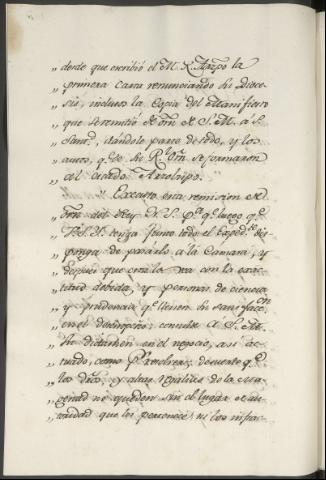 „ desde que escribió el M. R. Arzpo la
„ primera Carta renunciando su Dioce-
„ sis, inclusos la Copia del Manifiesto
„ que se remitió de orn de S. M. a S.
„ Santd, dándole parte de todo, y los
„ autos, qe de su Rl Orn se formaron
„ al citado Arzobispo.
„ Executo esta remision de
„ Orn del Rey N. S. pa qe luego qe
„ V. S. Y. tenga junto todo el Expedte dis-
„ ponga de pasarlo á la Camara, y
„ despues que con la exac-
„ titud debida, y personas de ciencia
„ y prudencia qe llenen su satisfaccon
„ en el consulte a S. M.
„ su dictamen en el negocio, asi ac-
„ tuado, como de suerte qe
„ los dros, y altas regalias de la Ma-
„ gestad no queden sin el lugar et au-
„ toridad que les pertenece, ni los infrac-